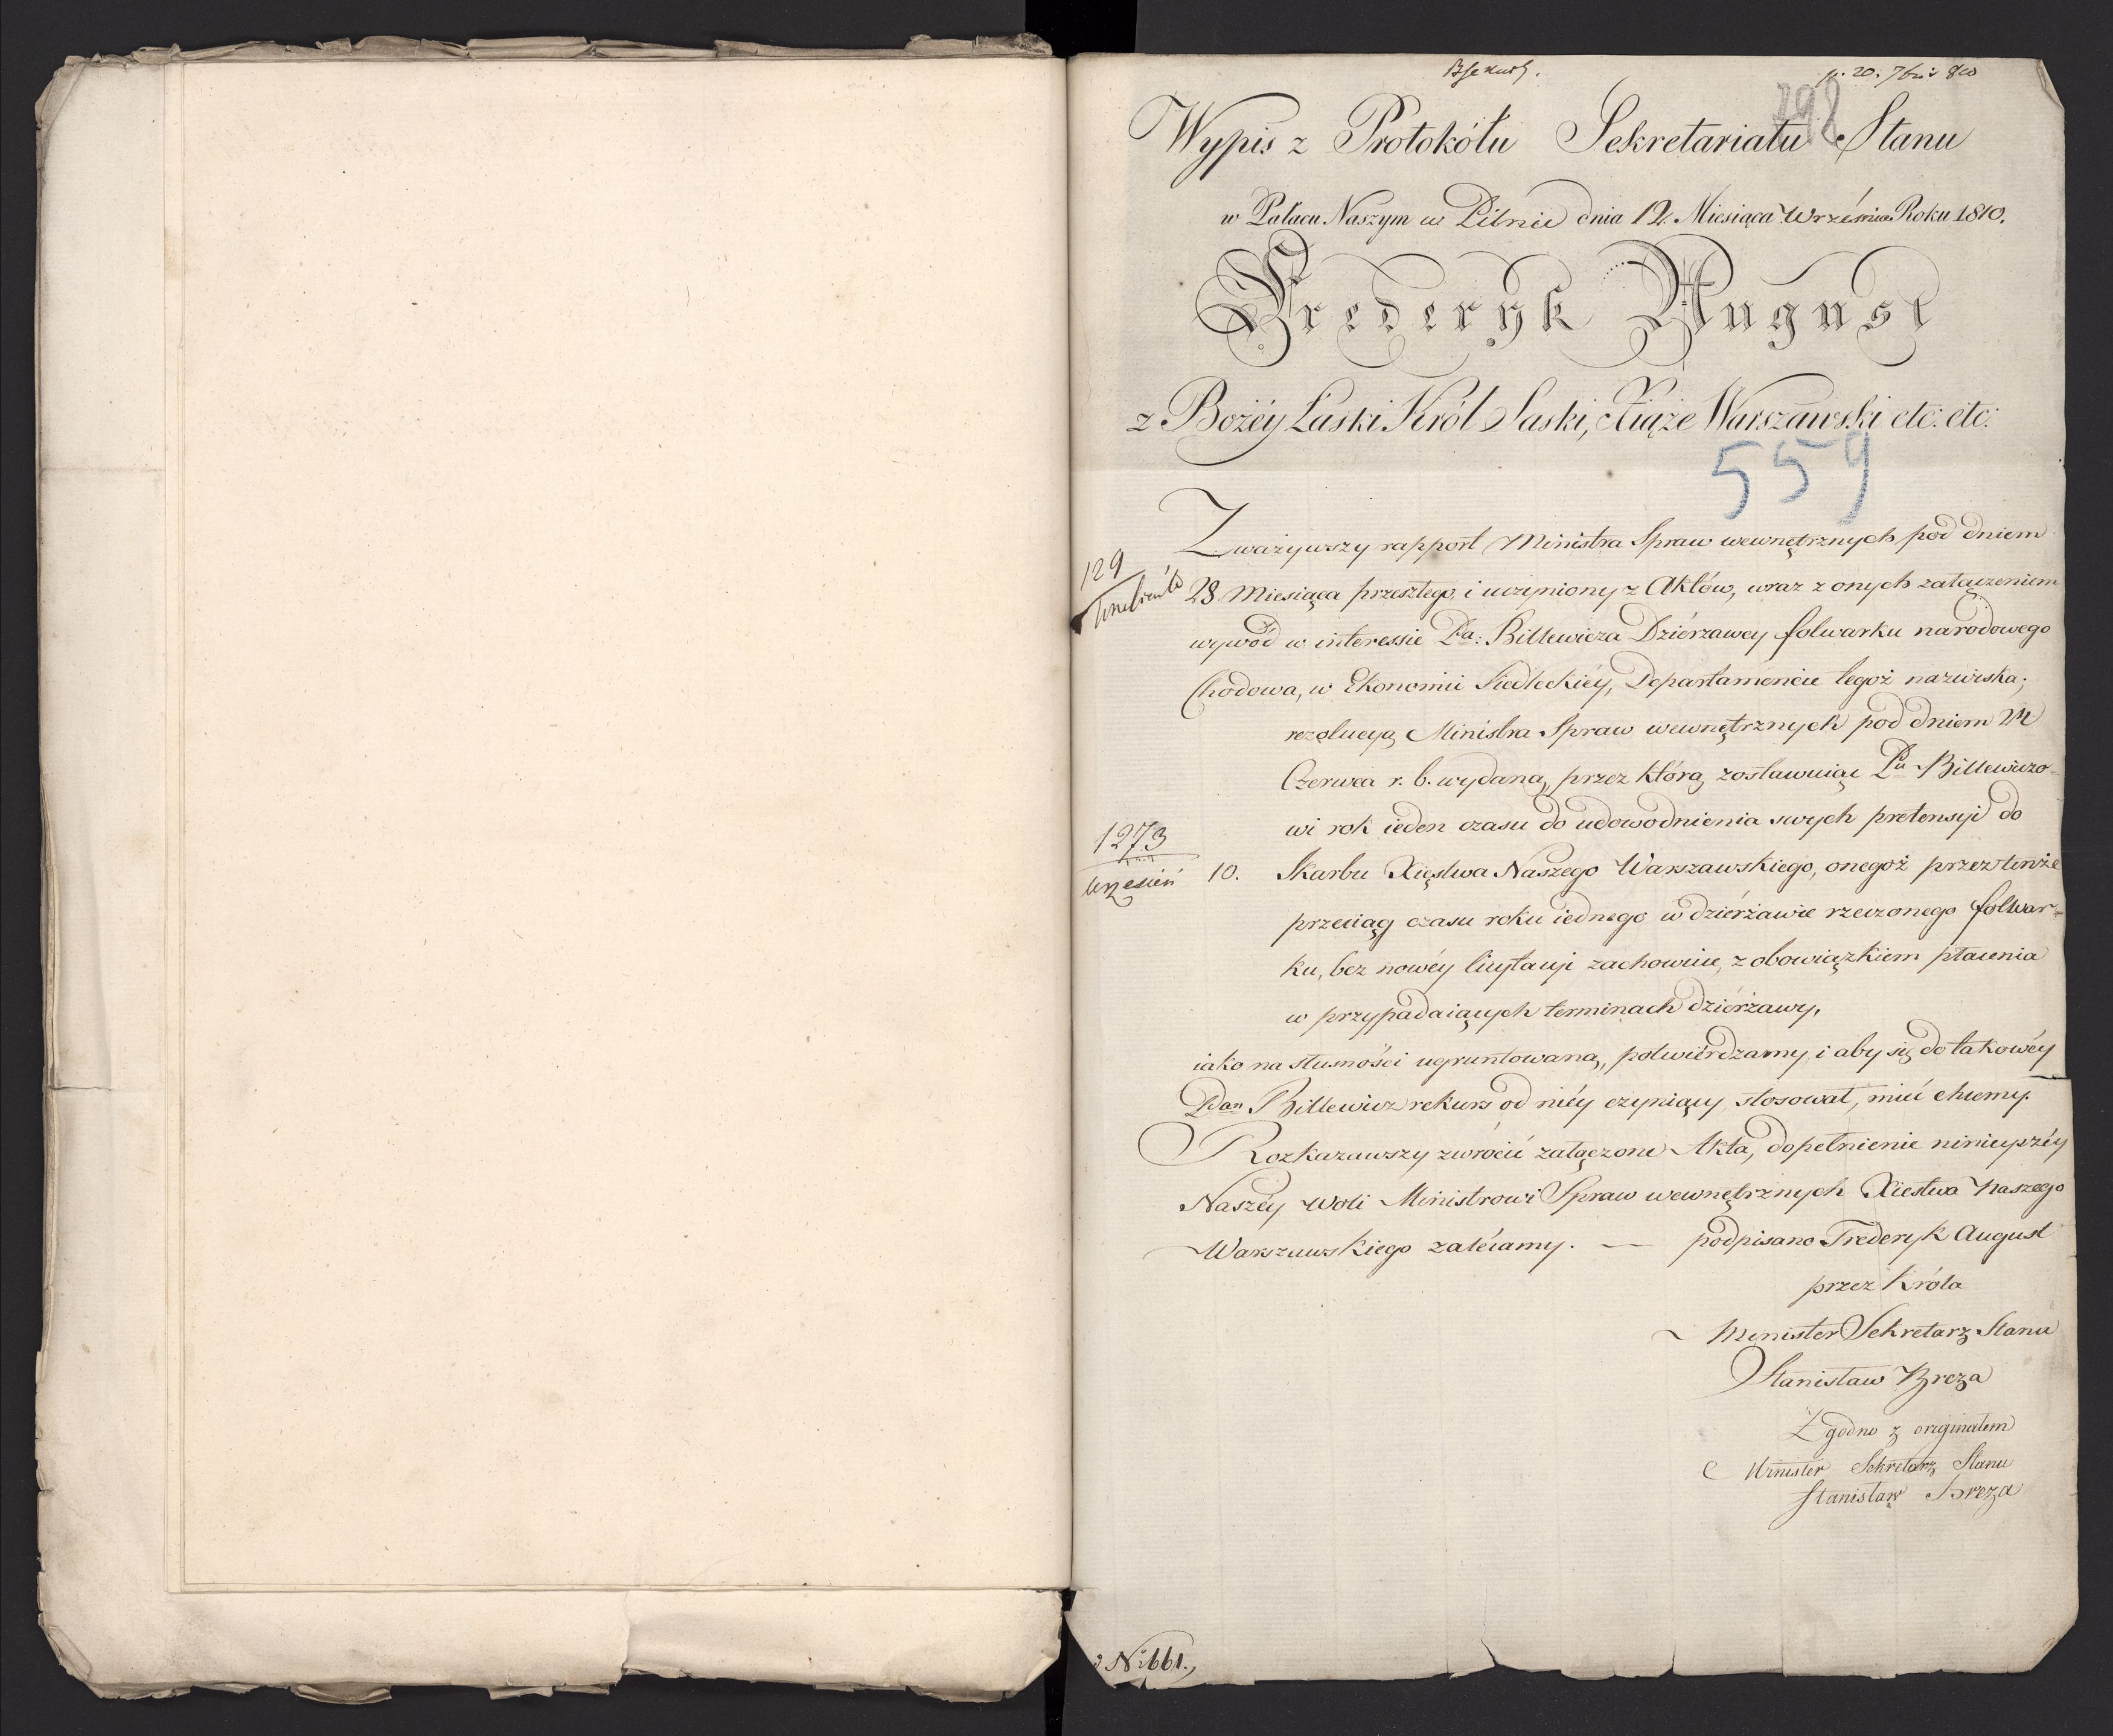 p. 20. 7bris 810
298
Wypis z Protokółu Sekretariatu Stanu
w Pałacu Naszym w Pilnie dnia 12. Miesiąca Września Roku 1810.
Fryderyk August
z Bożéy Łaski Król Saski, Xiąże Warszawski etc: etc:
559
Zważywszy rapport Ministra Spraw wewnętrznych pod dniem
129
28. Miesiąca przeszłego, i uczyniony z Aktów, wraz z onych załączeniem
wywód w interessie Pa: Billewicza Dziérżawcy folwarku narodowego
Chodowa, w Ekonomii Siedleckiéy, Departamencie tegoż nazwiska;
rezolucyą Ministra Spraw wewnętrznych pod dniem
Czerwca r. b. wydaną, przez którą zostawuiąc Pu Billewiczo-
wi rok ieden czasu do udowodnienia swych pretensyi do
1273
wrzesień
10. Skarbu Xięstwa Naszego Warszawskiego, onegoż przez tenże
przeciąg czasu roku iednego w dziérżawie rzeczonego folwar-
ku, bez nowéy licytacyi zachowuie, z obowiązkiem płacenia
w przypadaiących terminach dziérżawy,
iako na słuszności ugruntowaną, potwiérdzamy, i aby się do takowéy
Pan Billewicz rekurs od niéy czyniący, stosował, mieć chcemy.
Rozkazawszy zwrócić załączone Akta, dopełnienie ninieyszéy
Naszéy Woli Ministrowi Spraw wewnętrznych Xiestwa Naszego
Warszawskiego zalécamy. — podpisano Frederyk August
przez Króla
Minister Sekretarz Stanu
Stanisław Breza
Zgodno z originałem
Minister Sekretarz Stanu
Stanisław Breza
No 661.